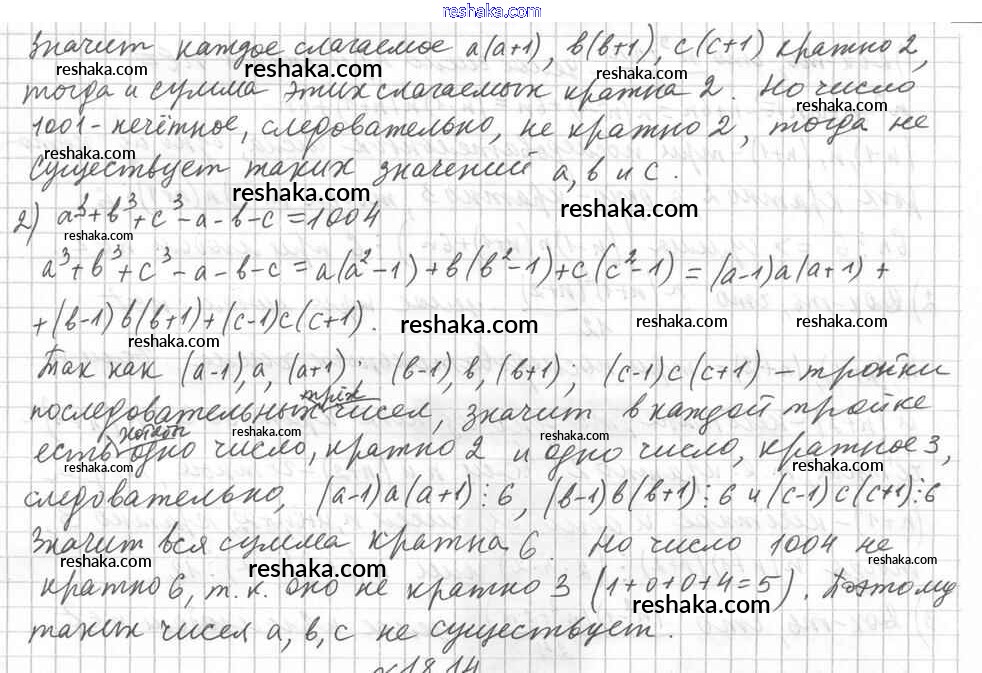 reshaka.com
Значит каждое слагаемое а(а+1), в(в+1), с(с+1) кратно 2,
reshaka.com reshaka.com reshaka.com
тогда и сумма этих слагаемых кратна 2. Но число
reshaka.com
1001 - нечётное, следовательно, не кратно 2, тогда не
reshaka.com
существует таких значений а, в и с.
reshaka.com reshaka.com
2) а³+в³+с³-а-в-с=1004
reshaka.com
а³+в³+с³-а-в-с=а(а²-1)+в(в²-1)+с(с²-1)=(а-1)а(а+1)+
+(в-1)в(в+1)+(с-1)с(с+1).
reshaka.com reshaka.com reshaka.com
reshaka.com
Так как (а-1),а,(а+1); (в-1),в,(в+1); (с-1)с(с+1) - тройки
трёх
последовательных чисел, значит в каждой тройке
хотябы
reshaka.com reshaka.com
есть одно число, кратно 2 и одно число, кратное 3,
reshaka.com reshaka.com
следовательно, (а-1)а(а+1)⋮6, (в-1)в(в+1)⋮6 и (с-1)с(с+1)⋮6
Значит вся сумма кратна 6. Но число 1004 не
reshaka.com reshaka.com reshaka.com
кратно 6, т.к. оно не кратно 3 (1+0+0+4=5). Поэтому
reshaka.com
таких чисел а, в, с не существует.
reshaka.com
№18.14